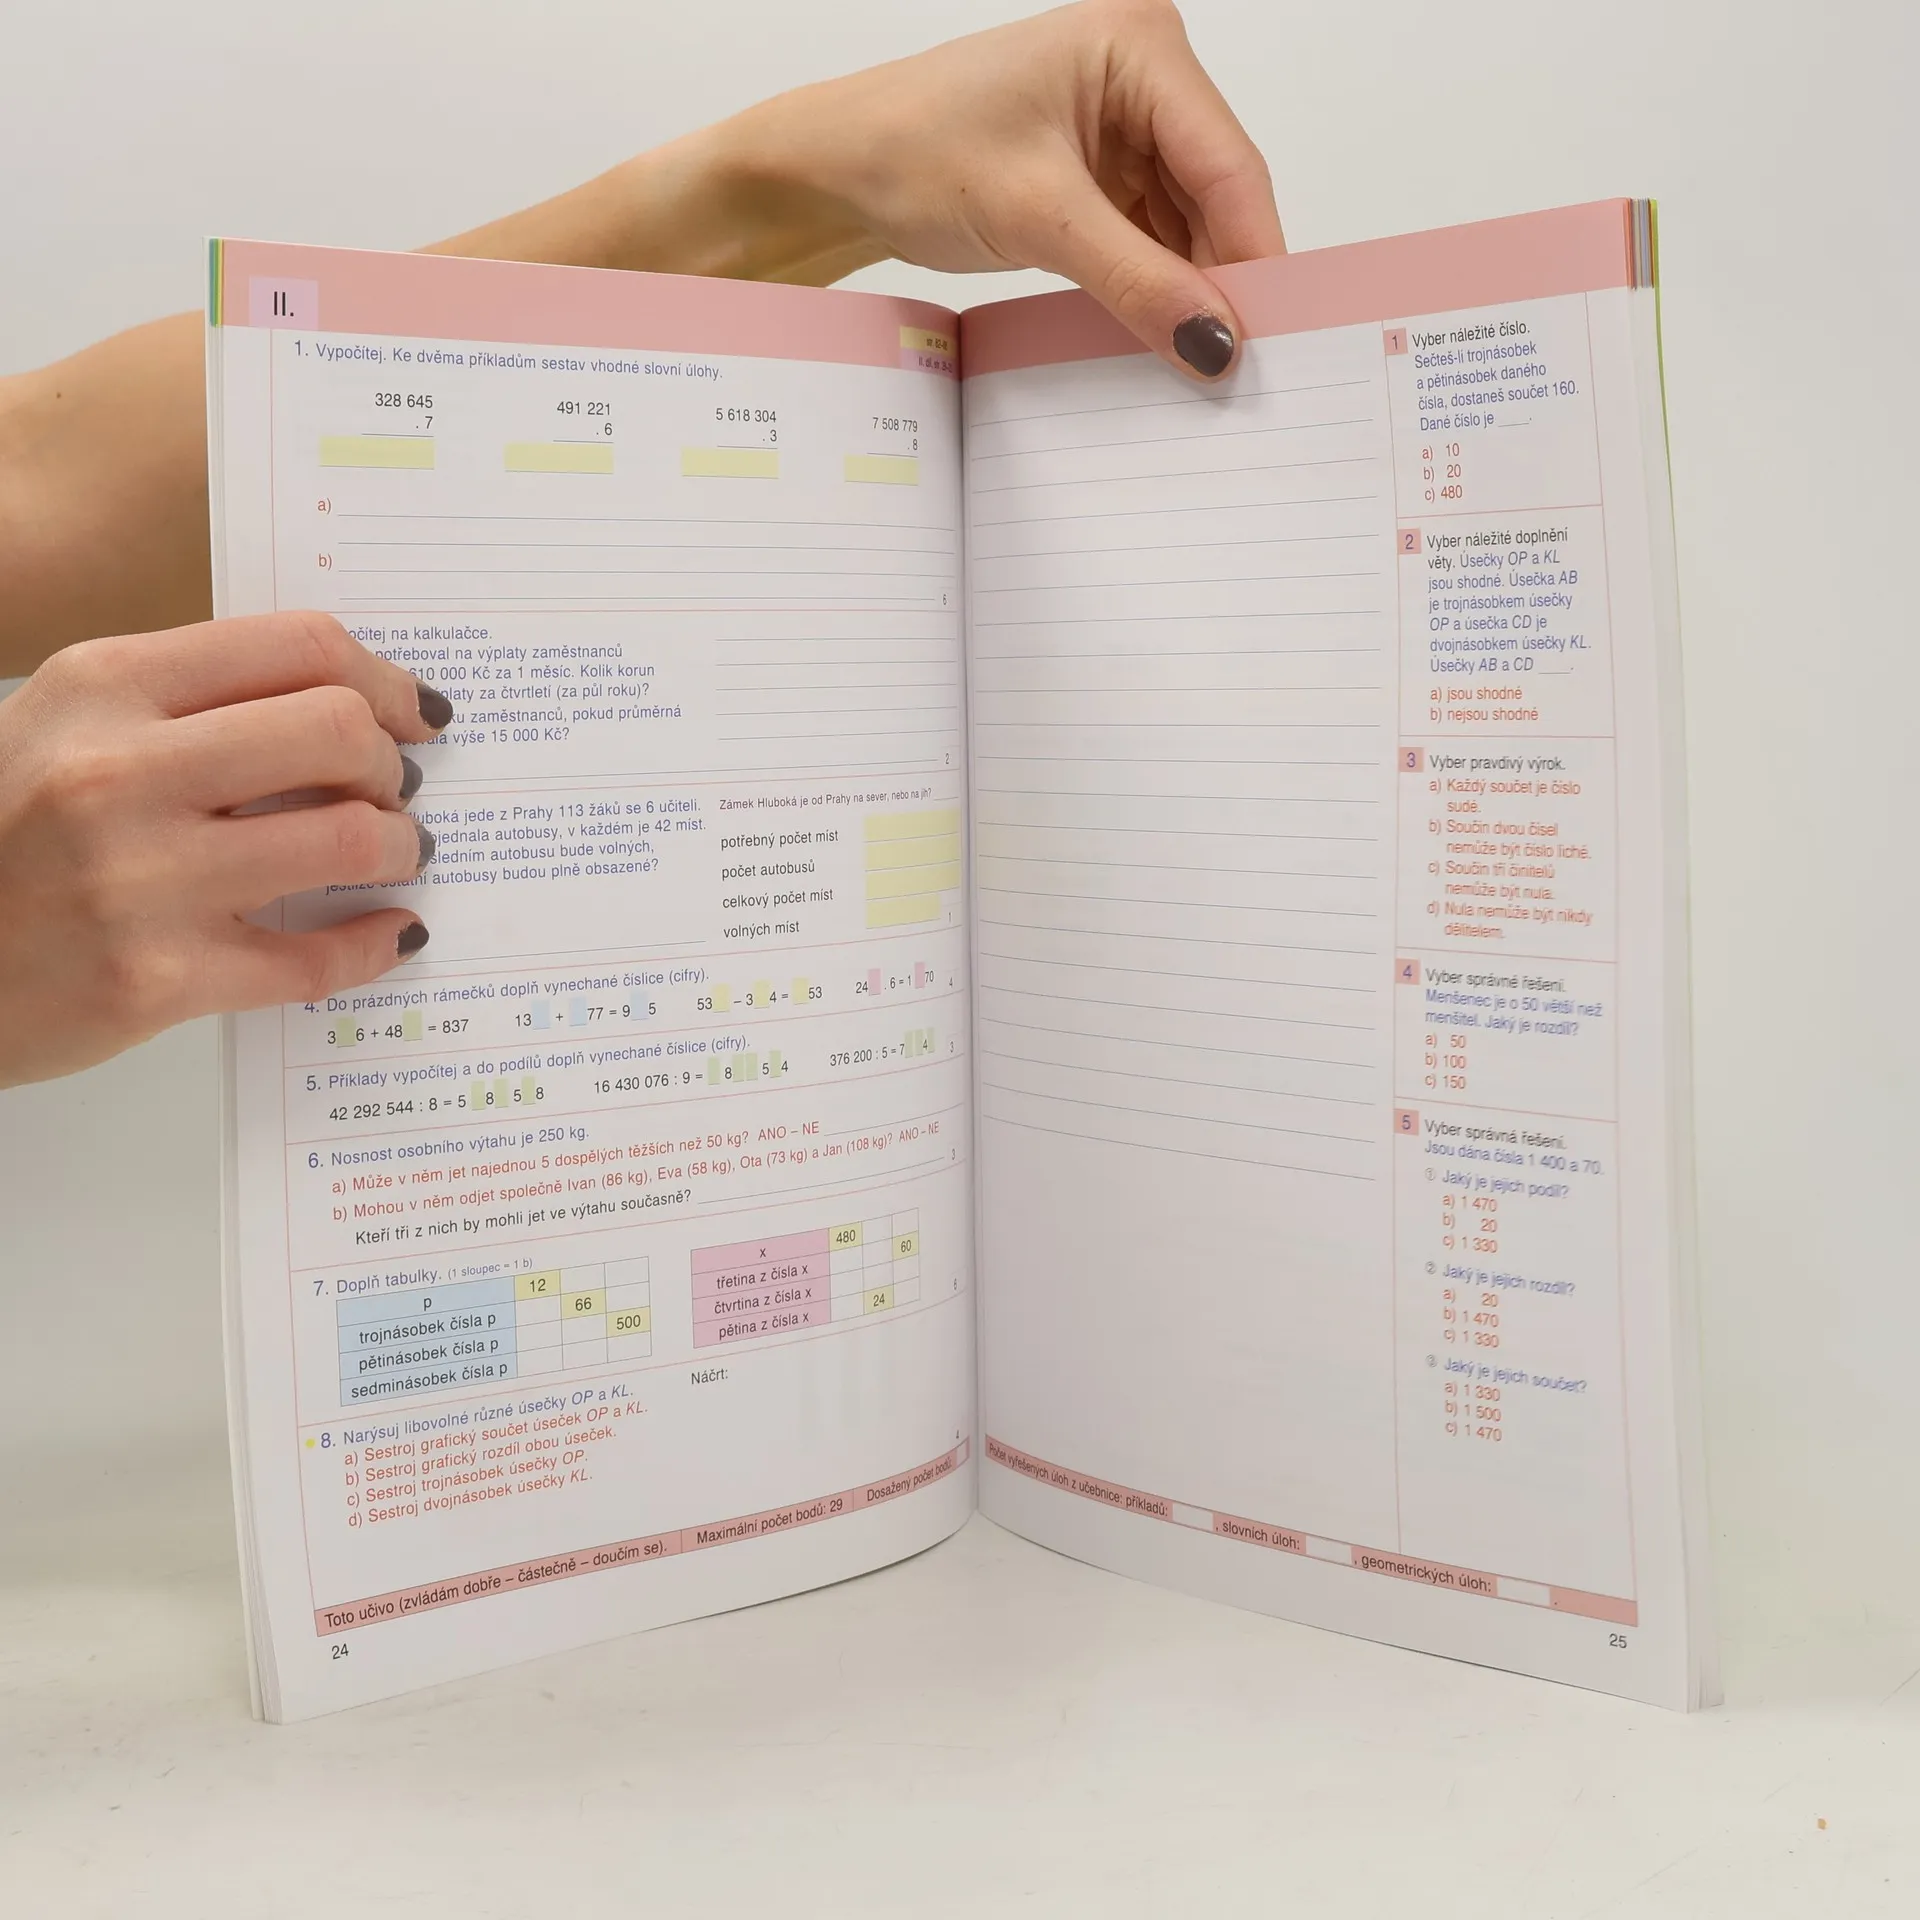 II.
str. 62–66
1. Vypočítej. Ke dvěma příkladům sestav vhodné slovní úlohy.
328 645 491 221 5 618 304 7 508 779
. 7 . 6 . 3 . 8
a)
b)
6
počítej na kalkulačce.
potřeboval na výplaty zaměstnanců
610 000 Kč za 1 měsíc. Kolik korun
výplaty za čtvrtletí (za půl roku)?
zaměstnanců, pokud průměrná
výše 15 000 Kč?
2
Hluboká jede z Prahy 113 žáků se 6 učiteli.
objednala autobusy, v každém je 42 míst.
posledním autobusu bude volných,
jestliže ostatní autobusy budou plně obsazené?
Zámek Hluboká je od Prahy na sever, nebo na jih?
potřebný počet míst
počet autobusů
celkový počet míst
volných míst
1
4. Do prázdných rámečků doplň vynechané číslice (cifry).
3 6 + 48 = 837 13 + 77 = 9 5 53 – 3 4 = 53 24 . 6 = 1 70
4
5. Příklady vypočítej a do podílů doplň vynechané číslice (cifry).
42 292 544 : 8 = 5 8 5 8 16 430 076 : 9 = 8 5 4 376 200 : 5 = 7 4
3
6. Nosnost osobního výtahu je 250 kg.
a) Může v něm jet najednou 5 dospělých těžších než 50 kg? ANO – NE
b) Mohou v něm odjet společně Ivan (86 kg), Eva (58 kg), Ota (73 kg) a Jan (108 kg)? ANO – NE
Kteří tři z nich by mohli jet ve výtahu současně?
3
7. Doplň tabulky. (1 sloupec = 1 b)
p 12
trojnásobek čísla p 66
pětinásobek čísla p 500
sedminásobek čísla p
x 480
třetina z čísla x 60
čtvrtina z čísla x
pětina z čísla x 24
6
8. Narýsuj libovolné různé úsečky OP a KL.
a) Sestroj grafický součet úseček OP a KL.
b) Sestroj grafický rozdíl obou úseček.
c) Sestroj trojnásobek úsečky OP.
d) Sestroj dvojnásobek úsečky KL.
Náčrt:
4
Toto učivo (zvládám dobře – částečně – doučím se). Maximální počet bodů: 29 Dosažený počet bodů:
24
1 Vyber náležité číslo.
Sečteš-li trojnásobek
a pětinásobek daného
čísla, dostaneš součet 160.
Dané číslo je ____.
a) 10
b) 20
c) 480
2 Vyber náležité doplnění
věty. Úsečky OP a KL
jsou shodné. Úsečka AB
je trojnásobkem úsečky
OP a úsečka CD je
dvojnásobkem úsečky KL.
Úsečky AB a CD ____.
a) jsou shodné
b) nejsou shodné
3 Vyber pravdivý výrok.
a) Každý součet je číslo
sudé.
b) Součin dvou čísel
nemůže být číslo liché.
c) Součin tří činitelů
nemůže být nula.
d) Nula nemůže být nikdy
dělitelem.
4 Vyber správné řešení.
Menšenec je o 50 větší než
menšitel. Jaký je rozdíl?
a) 50
b) 100
c) 150
5 Vyber správná řešení.
Jsou dána čísla 1 400 a 70.
① Jaký je jejich podíl?
a) 1 470
b) 20
c) 1 330
② Jaký je jejich rozdíl?
a) 20
b) 1 470
c) 1 330
③ Jaký je jejich součet?
a) 1 330
b) 1 500
c) 1 470
Počet vyřešených úloh z učebnice: příkladů: , slovních úloh: , geometrických úloh: .
25